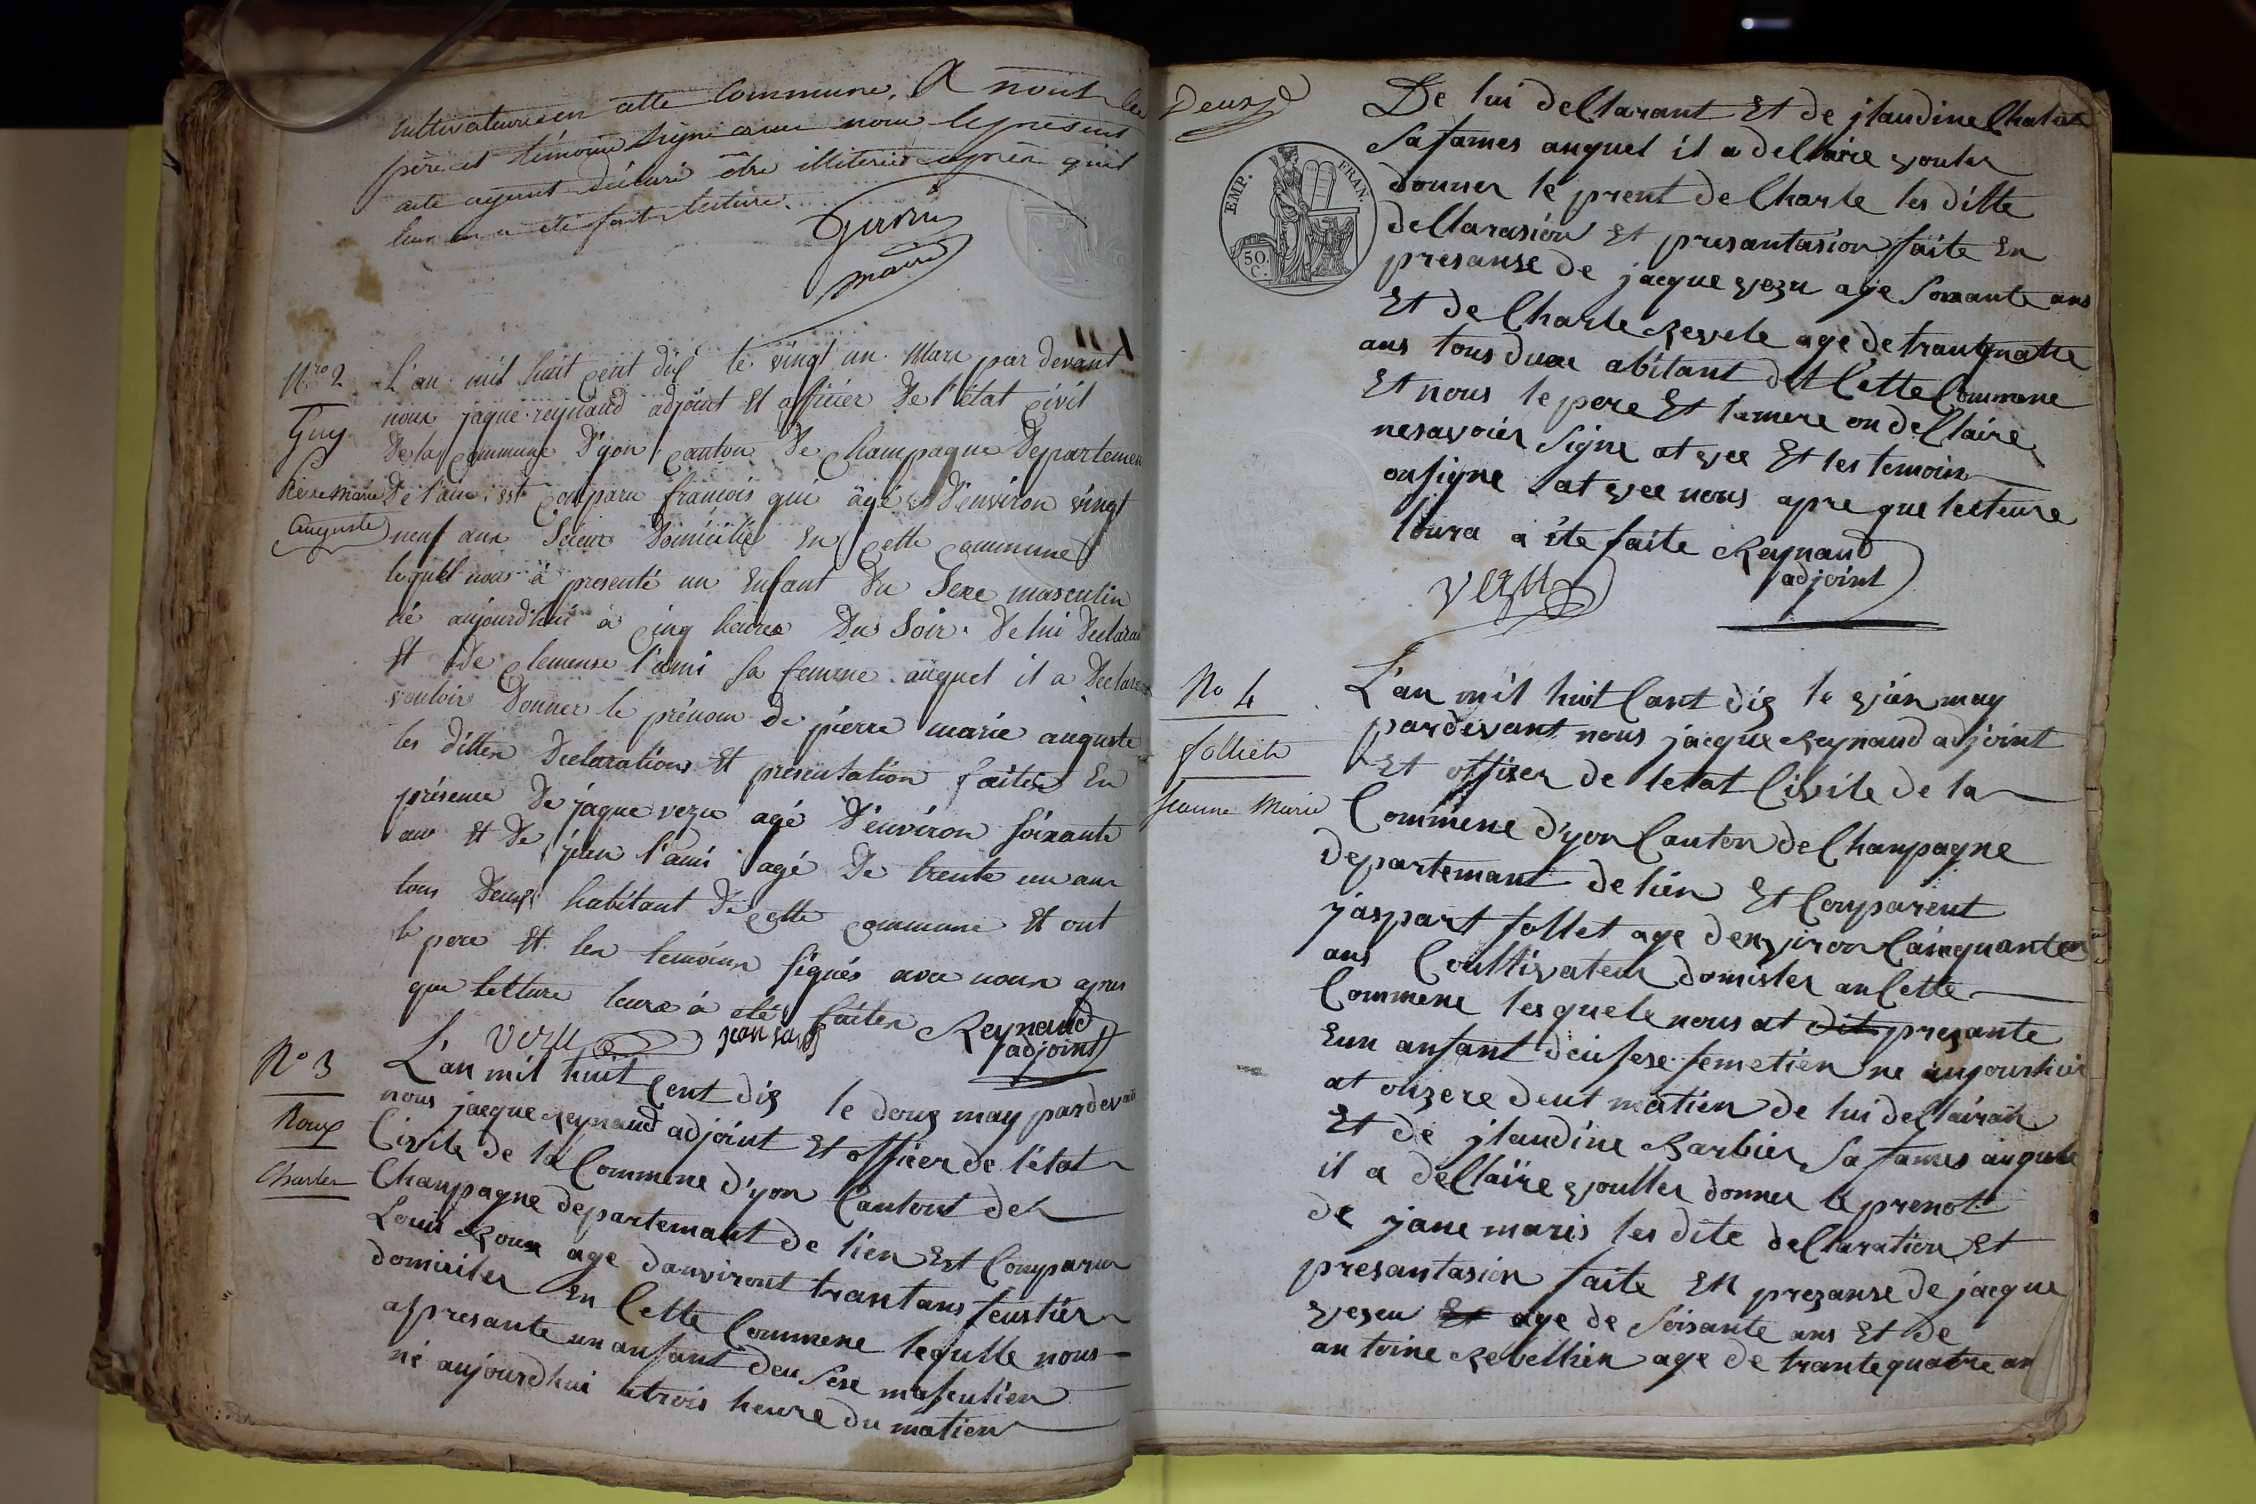 cultivateurs en cette Commune. A nous les
père et témoins signé avec nous le present
acte ayant déclaré être illiteré après qu'il
leur en a été fait lecture.
maire
Nro 2
Guy
Pierre Marie
auguste
L'an mil huit cent dix le vingt un Mars par devant
nous jaque reynaud adjoint Et officier De l'état civil
De la commune D'yon canton De champagne Departemen
De l'ain est comparu francois qui âgé D'environ vingt
neuf ans Domicilié En cette commune
lequel nous à presenté un Enfant Du Sexe masculin
né aujourd'hui à cinq heures Du Soir De lui Declara
Et De clemense l'ami sa femme auquel il a Declare
vouloir Donner le prénom de pierre marie auguste
les dittes Declarations Et presentation faites En
présence De jaque vezu agé D'environ soixante
ans Et De jean l'ami agé De trente un ans
tous Deux habitant De cette commune Et ont
le pere Et les temoins signés avec nous apres
que letture leurs à eté faites Reynaud
adjoint
vezu
No 3
Roux
Charles
L'an mil huit cent dix le deux may pardevant
nous jacque Reynaud adjoint Et officer de l'état
Civile de la Commene d'yon Cantont de
Chanpagne departemant de lien Est Comparu
Louis Roux age danviront trant ans feustier
domiciler En Cette Commene lequlle nous
apresante un anfant deu sexe masculien
né aujourdhui a trois heure du matien
Deux
De lui dellarant Et de jlaudine Chalut
Sa fames auquel il a dellaire vouler
donner le prent de Charle les ditte
dellarasion Et presantasion faite En
presanse de jacque vezu age Soixante ans
Et de Charle Revele age de trantquatre
ans tous duax abitant det Cette Commene
Et nous le pere Et lamere on dellaire
nesavoier Signe at vee Et les temoin
onsigne at vee nous apre que lecteure
loura a ete faite Reynaud
adjoint
vezu
EMP. FRAN.
50. C.
No 4
folliet
Jeanne Marie
L'an mil huit Cant dix le vjen may
pardevant nous jacque Reynaud adjoint
Et offiser de letat Civile de la
Commene d'yon Canton de Chanpagne
departemant de lien Et Conparent
jaspart follet age denviron Cainquante
ans Coultivateur domisler an Cette
Commene lesquele nous at dit presante
Eun anfant deu sese femelien ne aujourdhui
at onzere deut matien de lui dellairan
Et de jlaudine Barbier Sa fames auquele
il a dellaire vouller donner le prenot
de jane maris les dite dellaration Et
presantasion faite En prezanse de jacque
vezeu Et age de Soisante ans Et de
antoine Revellien age de trantequatre an